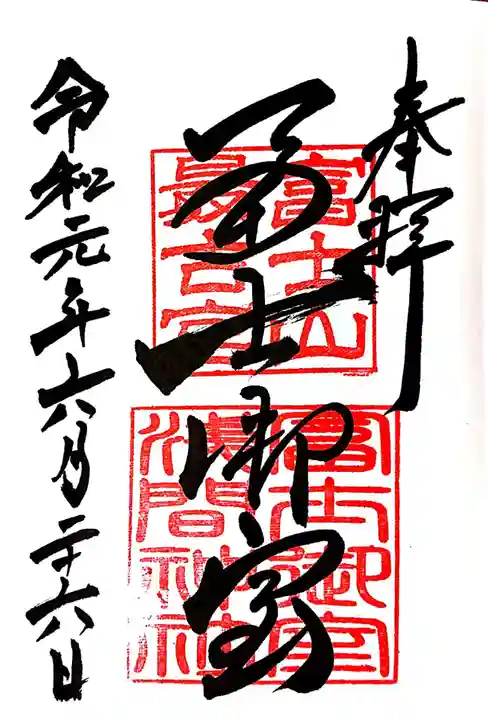 奉拝
富士御室
富士山
最古宮
冨士御室
浅間神社
令和元年六月二十六日